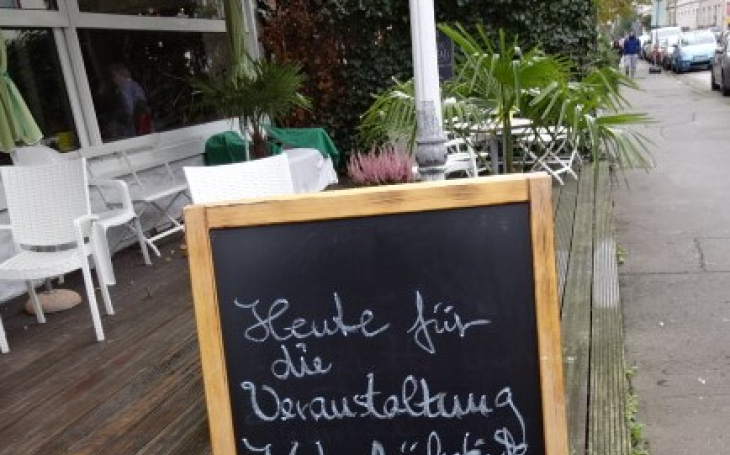 Heute für
die
Veranstaltung